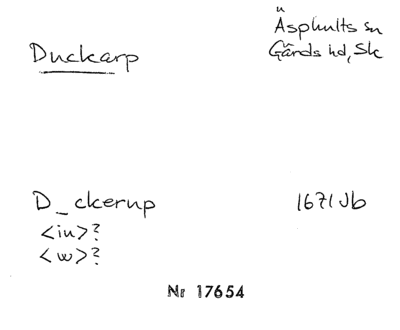 Duckarp
Äsphults sn
Gärds hd, Sk
D_ckerup
1671 Jb
<iu>?
<w>?
Nr 17654